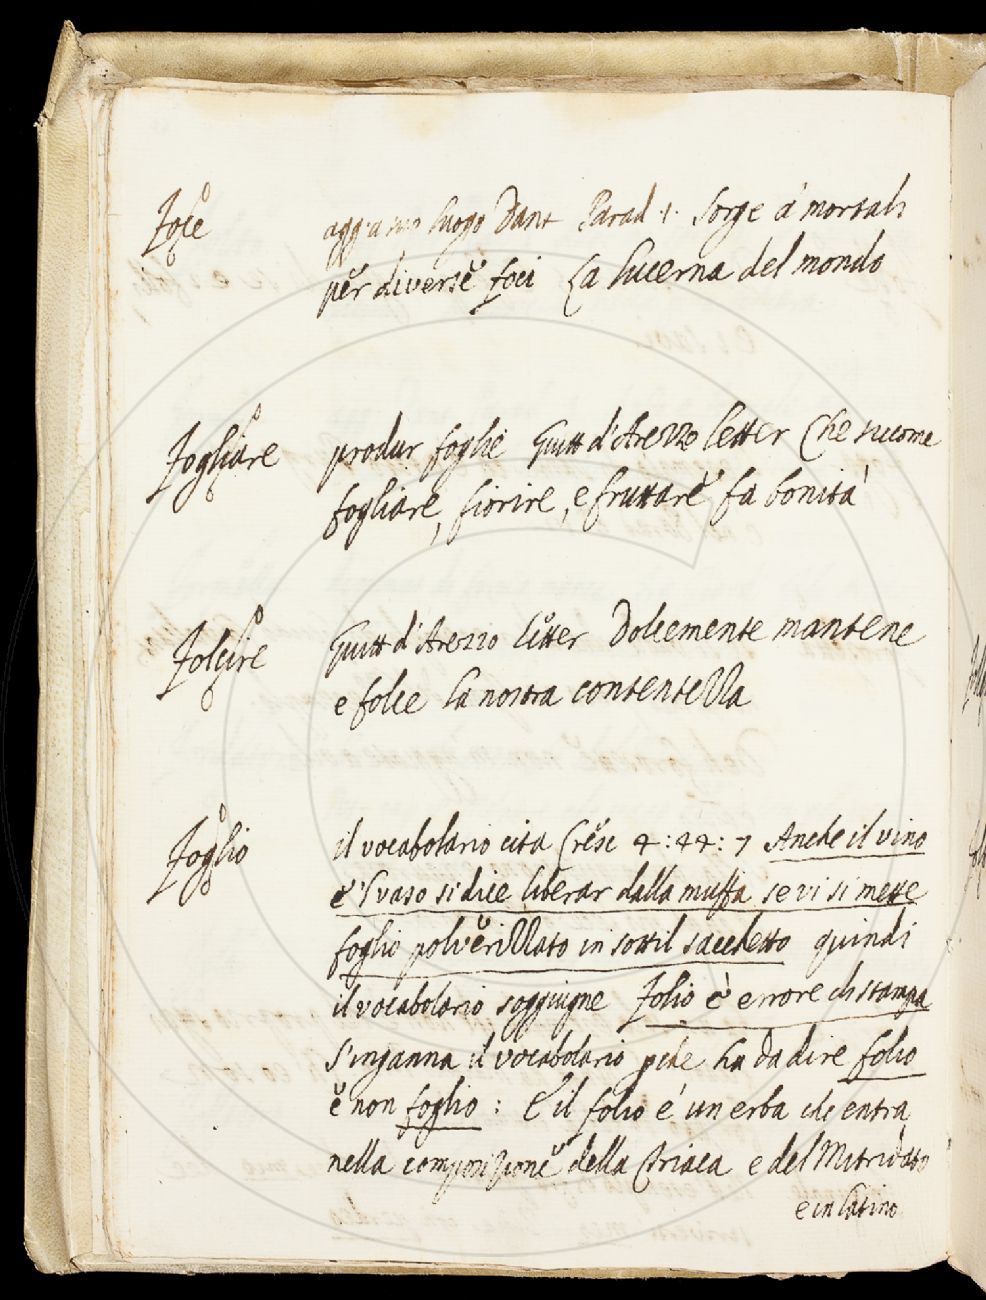 Foce
aggiamo luogo Dant Parad · 1 · Sorge a' mortali
per diverse foci La lucerna del mondo
Fogliare
produr foglie Guitt d'Arezzo letter Che siccome
fogliare, fiorire, e fruttare fa bonità
Folcire
Guitt d'Arezzo letter Dolcemente mantene
e folce la nostra contentezza
Foglio
il vocabolario cita Cresc 4 : 44 : 7 Anche il vino
e 'l vaso si dice liberar dalla muffa se vi si mette
foglio polverizzato in sottil sacchetto quindi
il vocabolario soggiugne Folio è errore di stampa
S'inganna il vocabolario pche ha da dire folio
e non foglio : E il folio é un erba che entra
nella composizione della Triaca e del Mitridato
e in latino